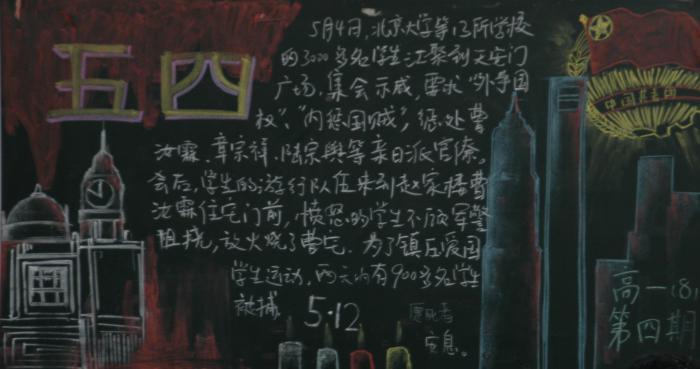 五四
5月4日,北京大学等13所学校
的3000多名学生汇聚到天安门
广场,集会示威,要求"外争国
权"、"内惩国贼",惩处曹
汝霖、章宗祥、陆宗舆等亲日派官僚。
会后,学生的游行队伍来到赵家楼曹
汝霖住宅门前,愤怒的学生不顾军警
阻挠,放火烧了曹宅。为了镇压爱国
学生运动,两天内有900多名学生
被捕。
5·12
愿死者
安息。
中国共青团
高一(8)
第四期